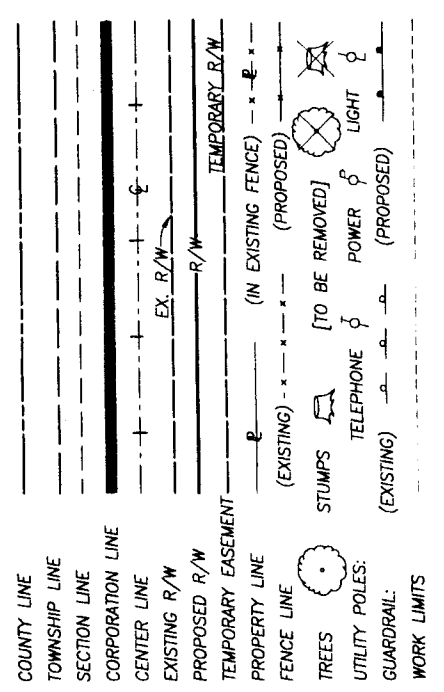 COUNTY LINE
TOWNSHIP LINE
SECTION LINE
CORPORATION LINE
CENTER LINE ℄
EXISTING R/W EX. R/W
PROPOSED R/W R/W
TEMPORARY EASEMENT TEMPORARY R/W
PROPERTY LINE (IN EXISTING FENCE)
FENCE LINE (EXISTING) (PROPOSED)
TREES STUMPS [TO BE REMOVED]
UTILITY POLES: TELEPHONE POWER LIGHT
GUARDRAIL: (EXISTING) (PROPOSED)
WORK LIMITS